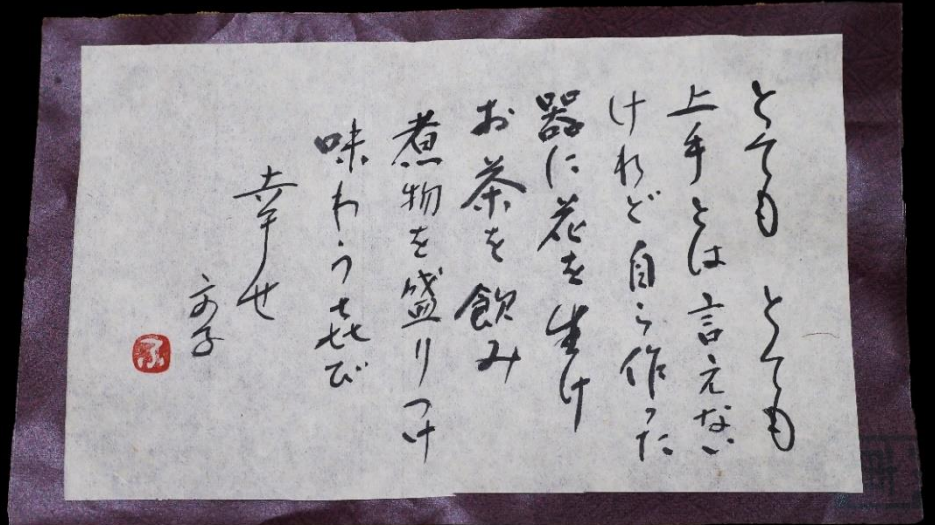 とても とても
上手とは言えない
けれど自ら作った
器に花を生け
お茶を飲み
煮物を盛りつけ
味わう㐂び
幸せ
ふ